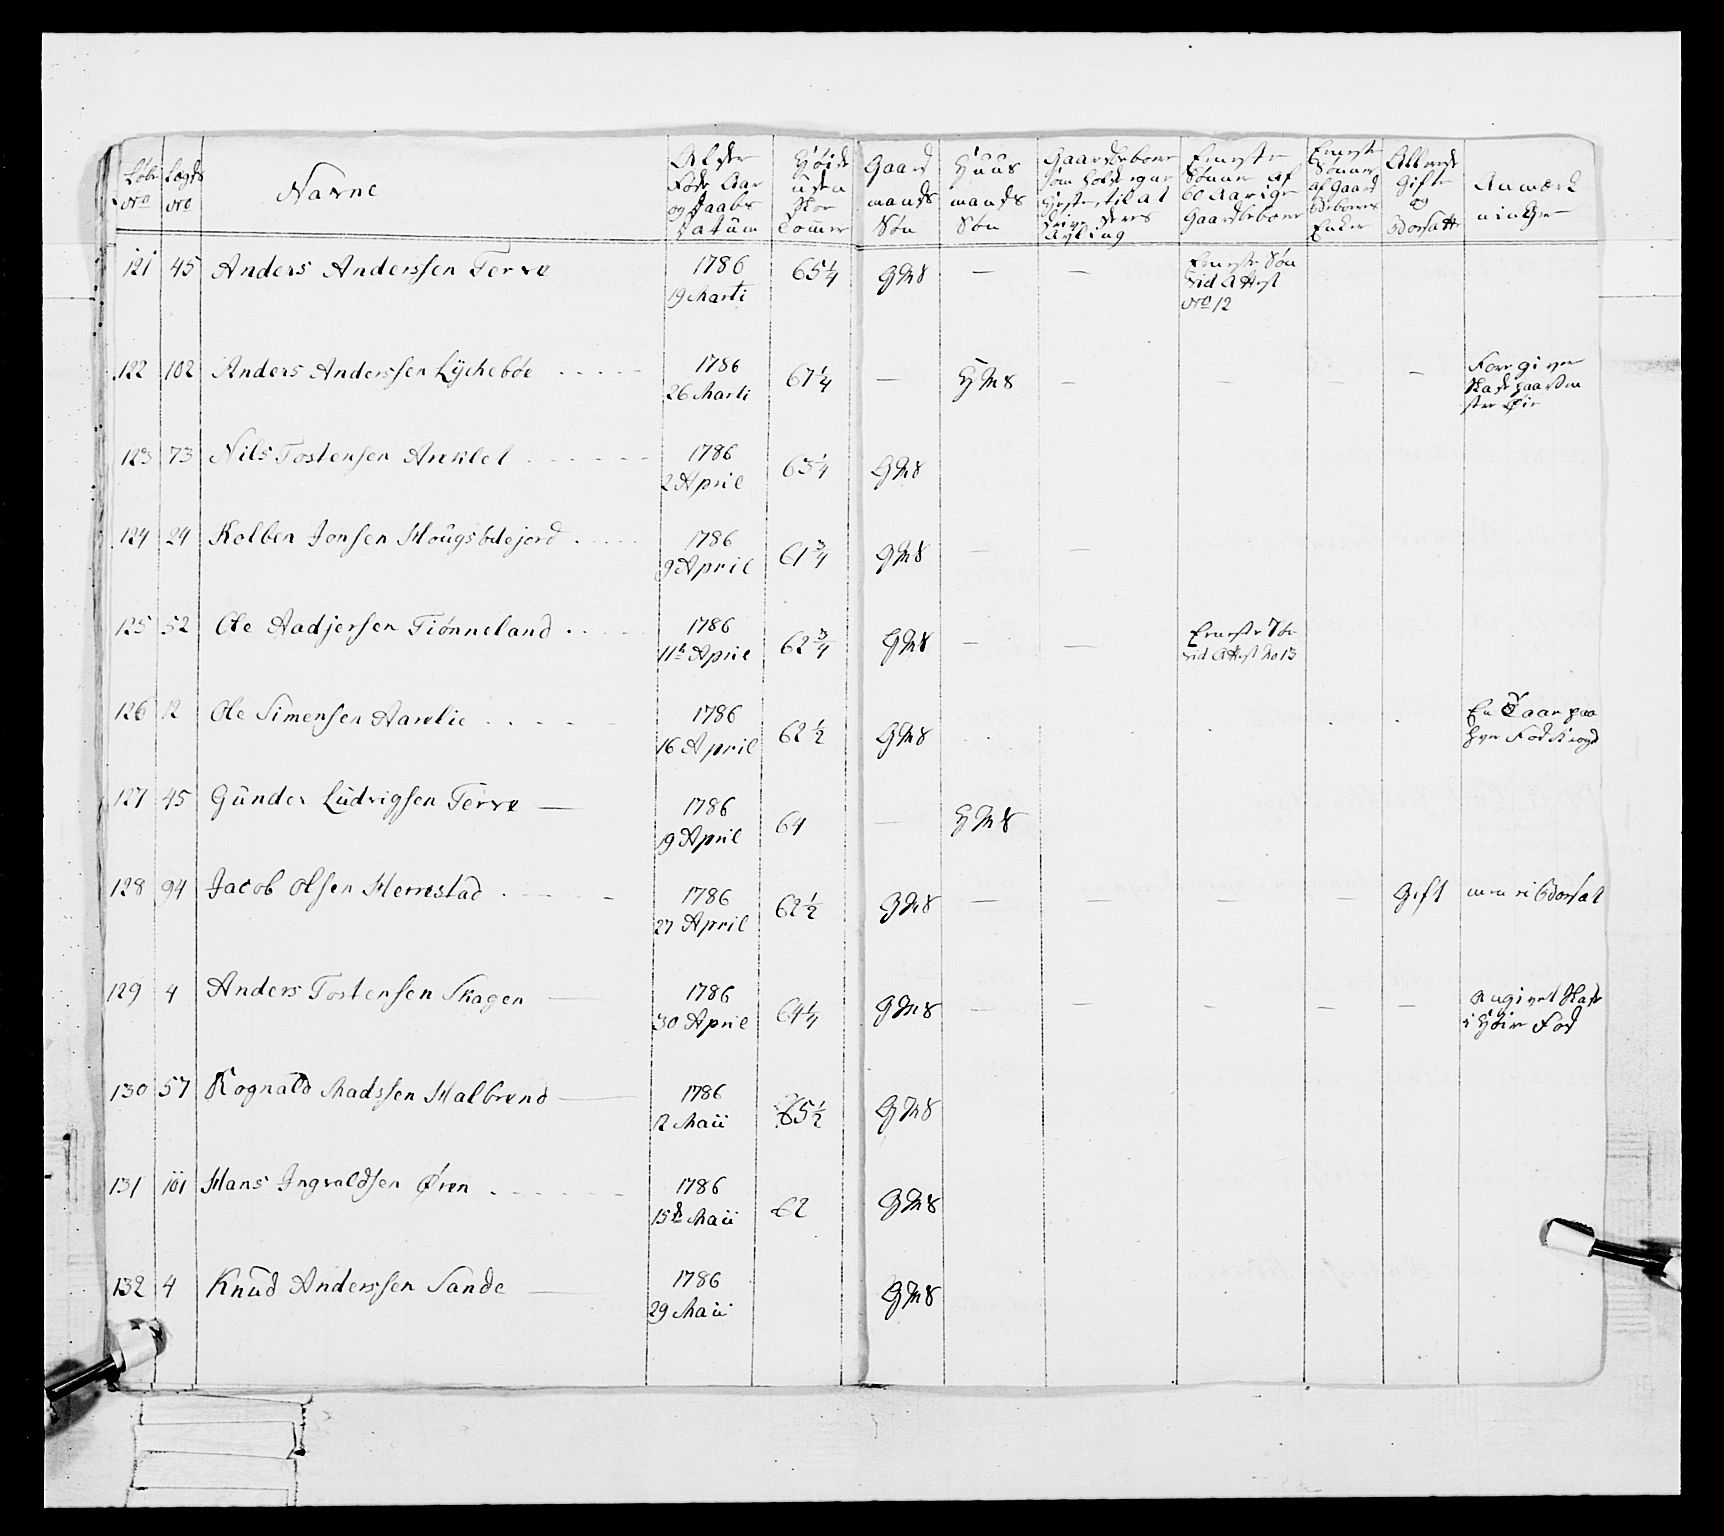 Løbe No
Lægds No
Navne
Alder Føde Aar og Daabs Datum
Høide uden Skoe Tomer
Gaard mands Søn
Huus mands Søn
Gaardbeboere som holde egne Heste til at drive deres Avling
Eeneste Sønner af 60 Aarige Gaardbeboere
Eeneste Sønner af Gaard beboeres Enker
Allerede Gifte og Bosatte
Anmærkninger
121 45 Anders Anderssen Terve 1786 19 Marti 65 1/4 GMS — — Eeneste Søn vid Attest No 12
122 102 Anders Anderssen Lychebøe 1786 26 Marti 67 1/4 — HMS — — — — Foregiver Skade paa venstre Øie
123 73 Nils Tostensen Areklet 1786 2 April 63 1/4 GMS
124 24 Kolben Jonsen Hougsbdejord 1786 9 April 61 3/4 GMS — —
125 52 Ole Aadjersen Tiønneland 1786 11te April 62 3/4 GMS — — Eeneste Søn vid Attest No 13
126 12 Ole Simensen Aarelie 1786 16 April 62 1/2 GMS En Taae paa hver Fod
127 45 Gunder Ludvigsen Terve — 1786 19 April 64 — HMS
128 94 Jacob Olsen Herrestad 1786 27 April 62 1/2 GMS — — — — Gift men ei Bosat
129 4 Anders Tostensen Skagen — 1786 30 April 64 1/4 GMS — — — — — Angivet Skade i Høire Fod
130 57 Rognald Madssen Halbrend — 1786 12 Maii 65 1/2 GMS
131 101 Hans Ingvaldsen Øren 1786 15de Maii 62 GMS
132 4 Knud Anderssen Sande — 1786 29 Maii GMS